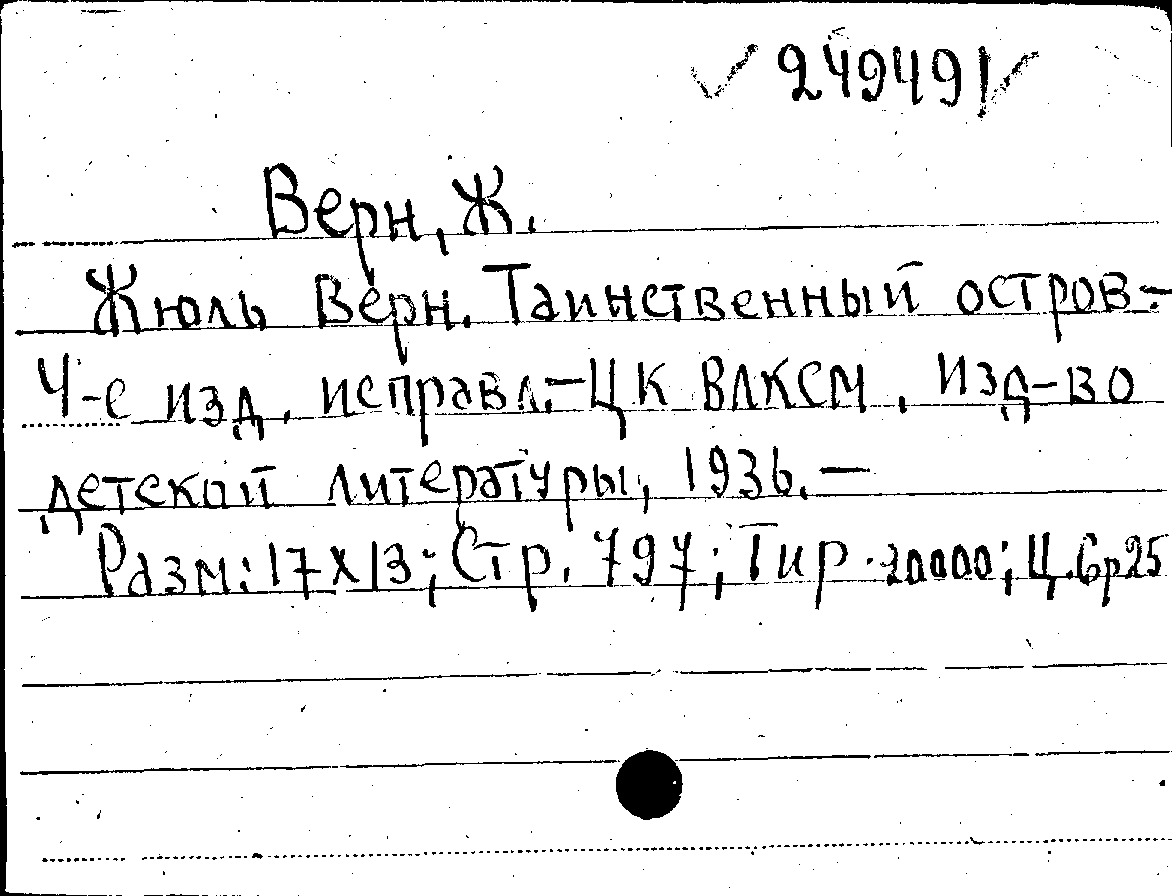 249491
Верн, Ж.
Жюль Верн. Таинственный остров.-
4-е изд. исправл.-ЦК ВЛКСМ, изд-во
детской литературы, 1936.-
Разм: 17х13; Стр. 797; Тир. 20000; Ц.6р25